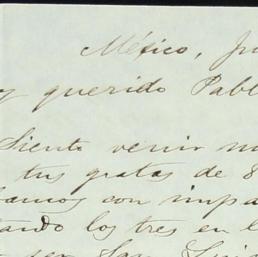 México, Ju
y querido Pabl
Siento venir
tus gratas de 8
bamos con impa
tando los tres en l
ser San Luis